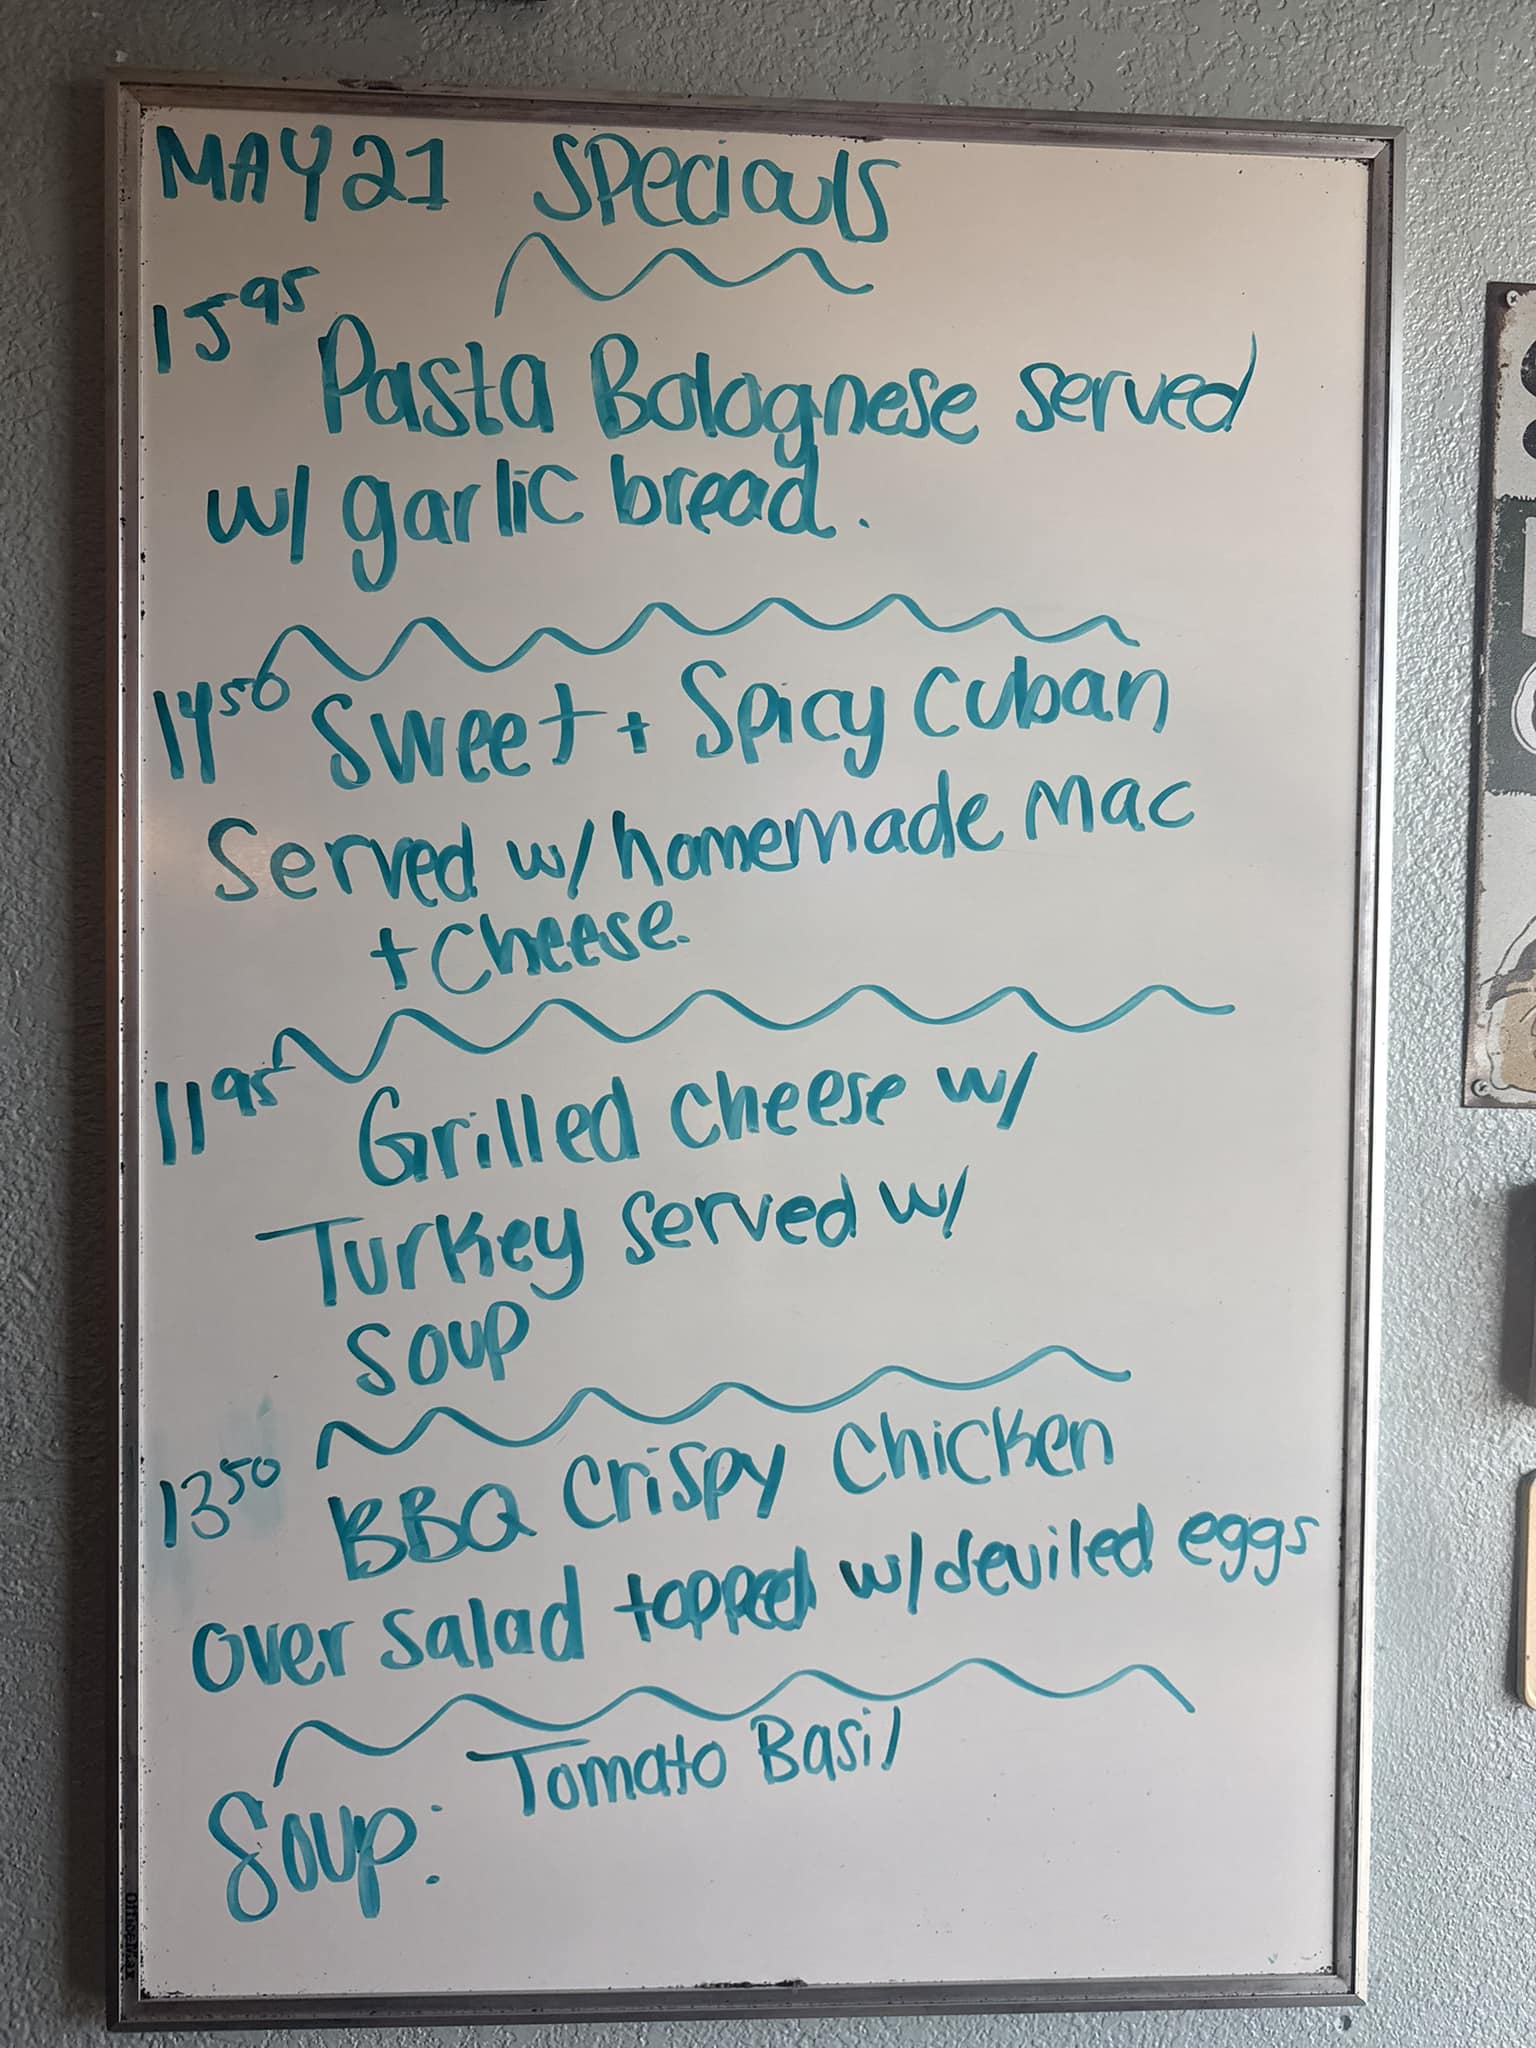 MAY 21 Specials
15 95
Pasta Bolognese served
w/ garlic bread.
14 50 Sweet + Spicy Cuban
Served w/ homemade mac
+ Cheese.
11 95 Grilled cheese w/
Turkey served w/
soup
13 50 BBQ Crispy Chicken
over salad topped w/ deviled eggs
Soup: Tomato Basil